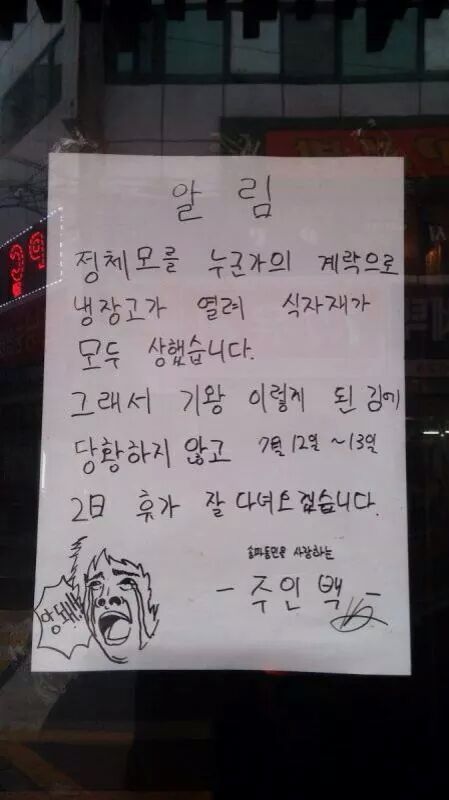 알 림
정체모를 누군가의 계락으로
냉장고가 열려 식자재가
모두 상했습니다.
그래서 기왕 이렇게 된 김에
당황하지 않고 7월 12일 ~13일
2日 휴가 잘 다녀오겠습니다.
송파동민을 사랑하는
- 주인 백 -
앙돼!!